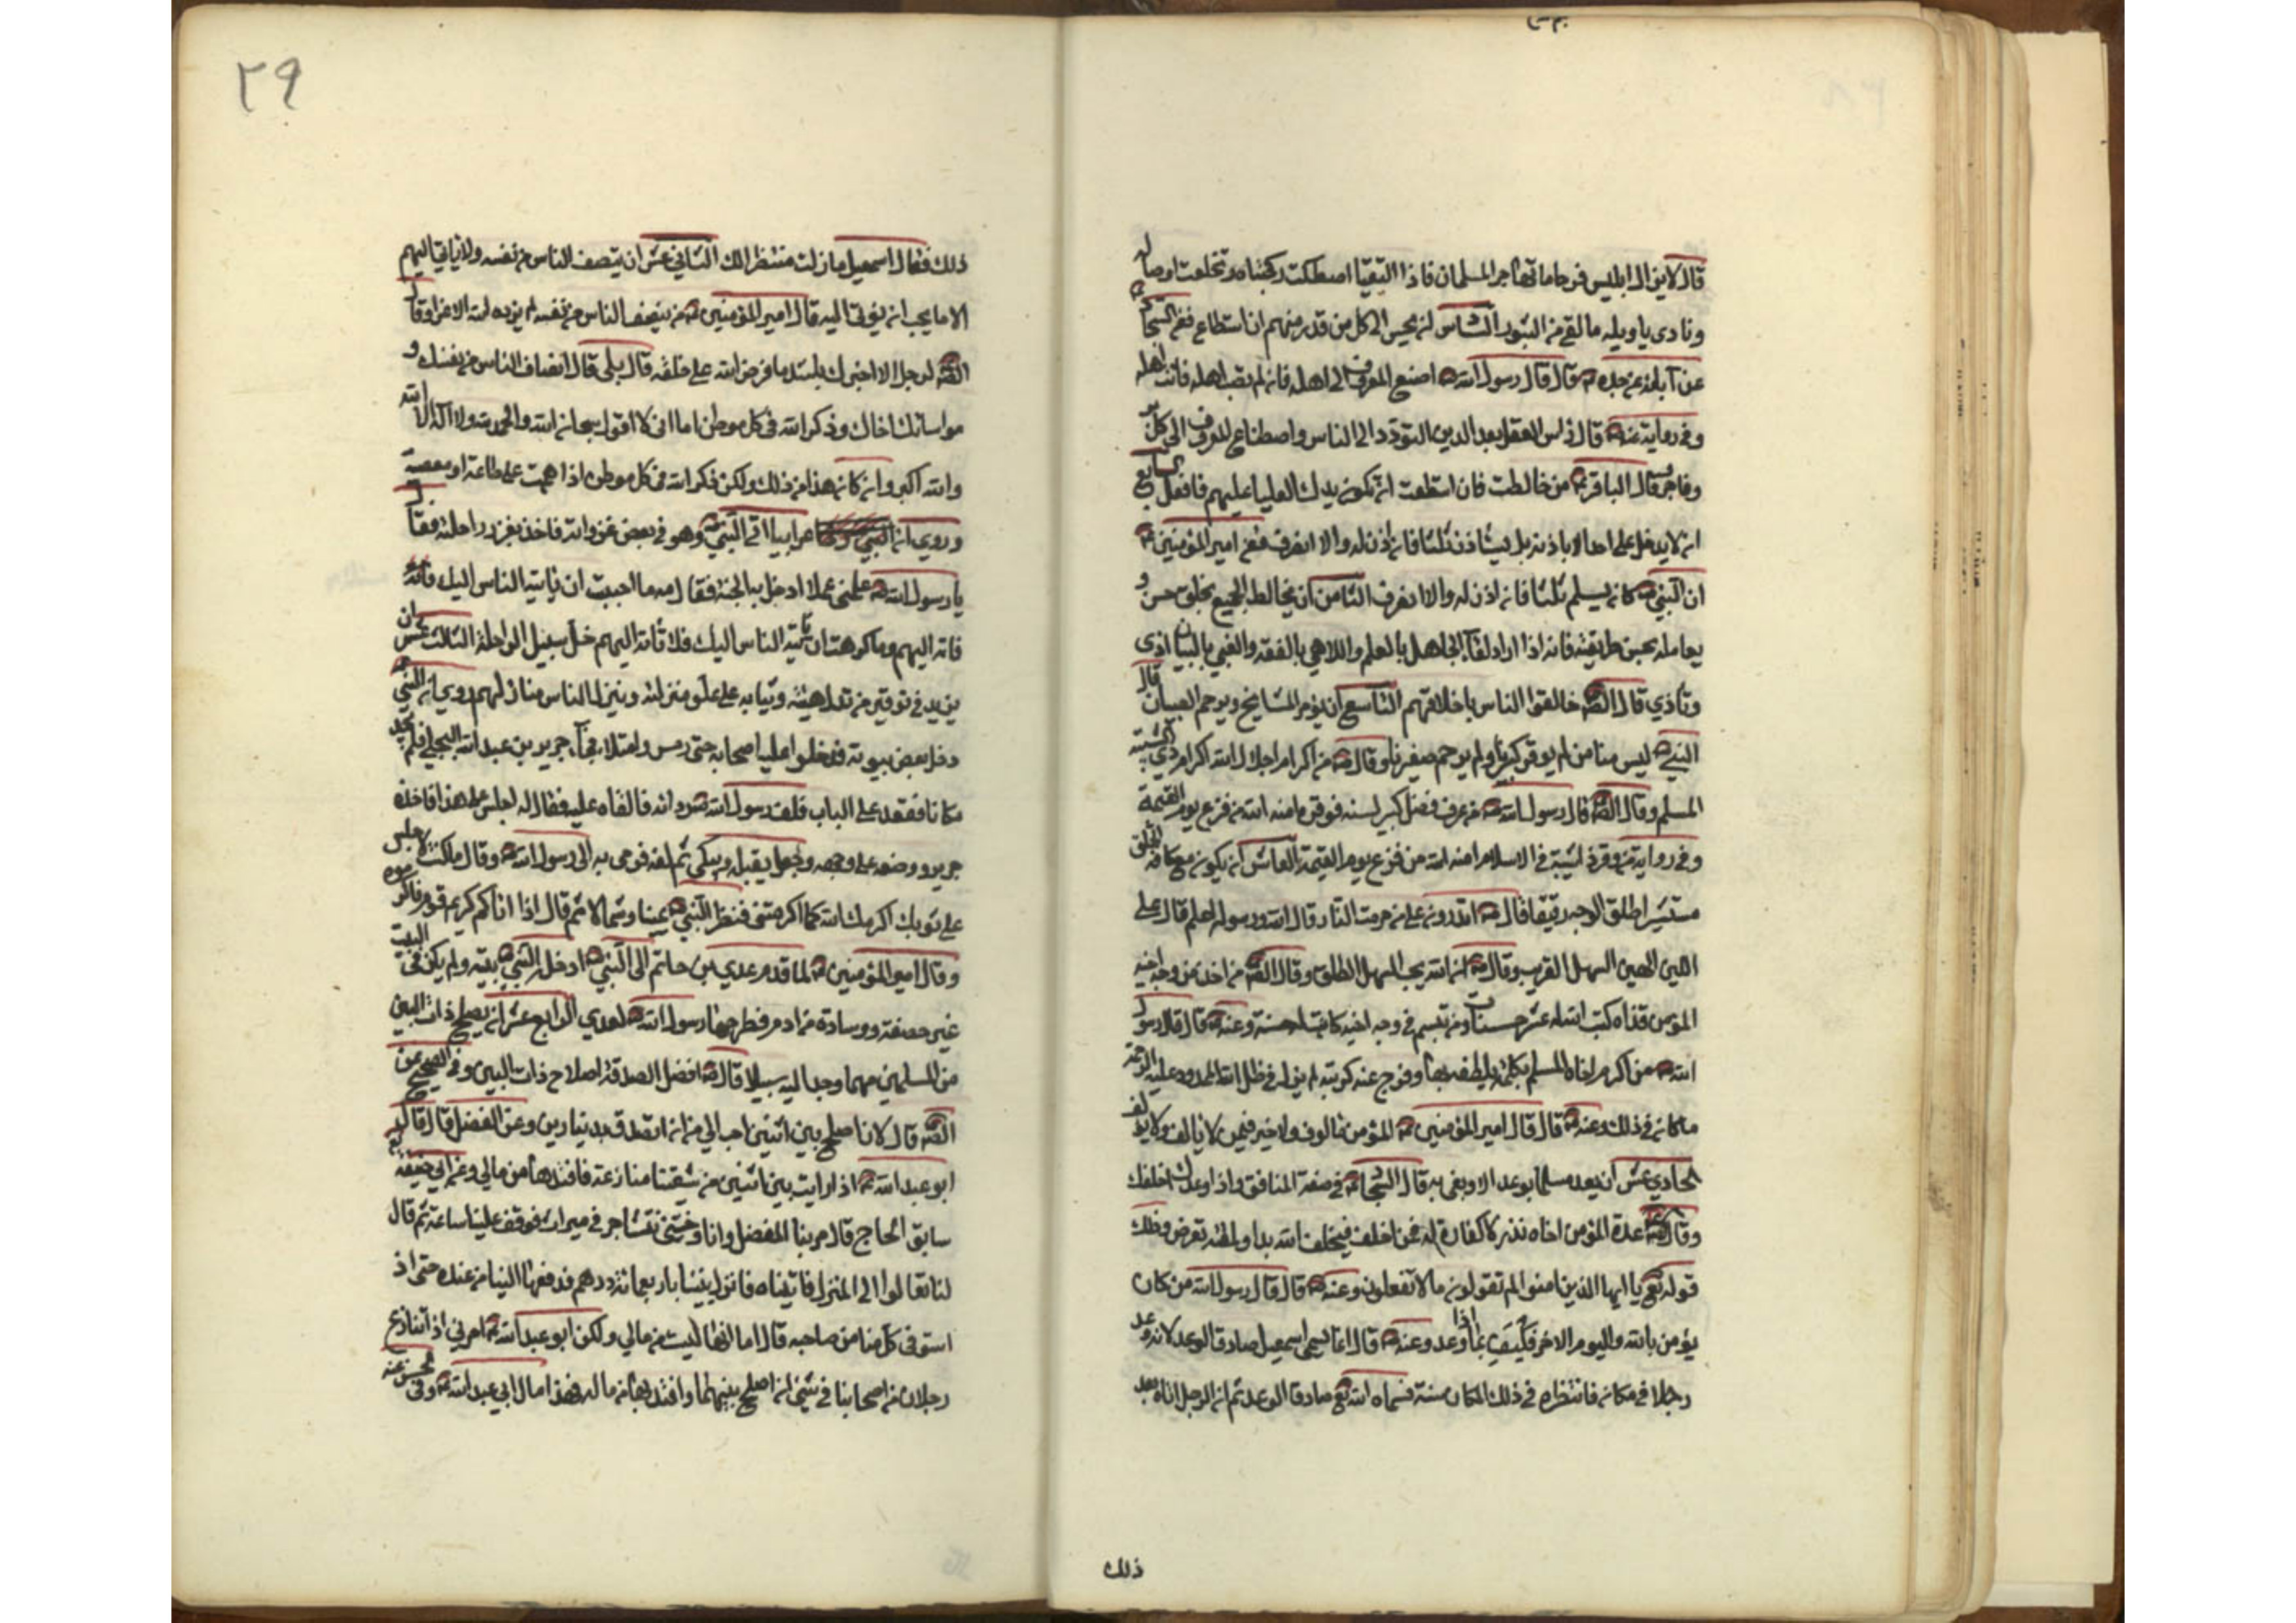 قال لا يزال ابليس فرحا ما تهاجر المسلمان فاذا التقيا اصطكت ركبتاه وتخلعت اوصاله
ونادى يا ويله ما لقى من الثبور السادس ان يحسن الى كل من قدر منهم ان استطاع فعن السجاد
عن ابيه عن جده ع قال قال رسول الله ص اصنع المعروف الى اهله فان لم تصب اهله فانت اهله
وفي رواية عنه ص قال راس العقل بعد الدين التودد الى الناس واصطناع المعروف الى كل بر
وفاجر وقال الباقر ع من خالطت فان استطعت ان تكون يدك العليا عليهم فافعل السابع
ان لا يدخل على احد الا باذنه بل يستاذن ثلثا فان اذن له والا انصرف فعن امير المؤمنين ع
ان النبي ص كان يسلم ثلثا فان اذن له والا انصرف الثامن ان يخالط الجميع بخلق حسن و
يعامله بحسن طريقته فانه اذا اراد لقاء الجاهل بالعلم واللاهي بالفقه والغبي بالبيان اذى
وتأذي قال الصم خالقوا الناس باخلاقهم التاسع ان يوقر المشايخ ويرحم الصبيان قال
النبي ص ليس منا من لم يوقر كبيرنا ولم يرحم صغيرنا وقال ص من اكرام اجلال الله اكرام ذي الشيبة
المسلم وقال الصم قال رسول الله ص من عرف فضل كبير لسنه فوقره امنه الله من فزع يوم القيمة
وفي رواية من وقر ذا شيبة في الاسلام امنه الله من فزع يوم القيمة العاشر ان يكون مع كافة الخلق
مستبشرا طلق الوجه رقيقا قال ص اتدرون على من حرمت النار قال الله ورسوله اعلم قال على
اللين الهين السهل القريب وقال ص ان الله يحب السهل الطلق وقال الصم من اخذ من وجه اخيه
المؤمن قذاة كتب الله له عشر حسنات ومن تبسم في وجه اخيه كانت له حسنة وعنه ع قال قال رسول
الله ص من اكرم اخاه المسلم بكلمة يلطفه بها وفرج عنه كربته لم يزل في ظل الله الممدود عليه الرحمة
ما كان في ذلك وعنه ع قال قال امير المؤمنين ع المؤمن مالوف ولا خير فيمن لا يالف ولا يؤلف
الحادي عشر ان لا يعد مسلما بوعد الا ويفي به قال السجاد ع في صفة المنافق واذا وعدك اخلفك
وقال الصم عدة المؤمن اخاه نذر لا كفارة له فمن اخلف فبخلف الله بدا ولمقته تعرض وذلك
قوله تع يا ايها الذين امنوا لم تقولون ما لا تفعلون وعنه ع قال قال رسول الله من كان
يؤمن بالله واليوم الاخر فليف اذا وعد وعنه ع قال انما سمي اسمعيل صادق الوعد لانه وعد
رجلا في مكان فانتظره في ذلك المكان سنة فسماه الله تع صادق الوعد ثم ان الرجل اتاه بعد
ذلك
٢٩
ذلك فقال اسمعيل ما زلت منتظرا لك الثاني عشر ان ينصف الناس من نفسه ولا ياتي اليهم
الا ما يحب ان يؤتى اليه قال امير المؤمنين ع من ينصف الناس من نفسه لم يزده الله الا عزا وقال
الصم لرجل الا اخبرك باشد ما فرض الله على خلقه قال بلى قال انصاف الناس من نفسك و
مواساتك اخاك وذكر الله في كل موطن اما اني لا اقول سبحان الله والحمد لله ولا اله الا الله
والله اكبر وان كان هذا من ذلك ولكن ذكر الله في كل موطن اذا هجمت على طاعة او معصية
وروي ان اعرابيا اتى النبي ص وهو في بعض غزواته فاخذ بغرز راحلته فقال
يا رسول الله ص علمني عملا ادخل به الجنة فقال له ما احببت ان ياتيه الناس اليك فاته
فاته اليهم وما كرهت ان ياتيه الناس اليك فلا تاته اليهم خل سبيل الراحلة الثالث عشر ان
يزيد في توقير من تدل هيئته وثيابه على علو منزلته وينزل الناس منازلهم روي ان النبي ص
دخل بعض بيوته فدخلوا عليه اصحابه حتى دحس وامتلا فجاء جرير بن عبد الله البجلي فلم يجد
مكانا فقعد على الباب فلف رسول الله ص ردائه فالقاه عليه فقال له اجلس على هذا فاخذه
جرير ووضعه على وجهه وجعل يقبله ويبكي ثم لفه فرمى به الى رسول الله ص وقال ما كنت لاجلس
على ثوبك اكرمك الله كما اكرمتني فنظر النبي ص يمينا وشمالا ثم قال اذا اتاكم كريم قوم فاكرموه
وقال امير المؤمنين ع لما قدم عدي بن حاتم الى النبي ص ادخله النبي ص بيته ولم يكن في البيت
غير خصفة ووسادة من ادم فطرحها رسول الله ص لعدي الرابع عشر ان يصلح ذات البين
من المسلمين مهما وجد اليه سبيلا قال ص افضل الصدقة اصلاح ذات البين وفي الصحيح عن
الصم قال لان اصلح بين اثنين احب الي من ان اتصدق بدينارين وعن المفضل قال قال لي
ابو عبد الله ع اذا رايت بين اثنين من شيعتنا منازعة فافتدها من مالي وعن ابي حنيفة
سابق الحاج قال مر بنا المفضل وانا وختني نتشاجر في ميراث فوقف علينا ساعة ثم قال
لنا تعالوا الى المنزل فاتيناه فاصلح بيننا باربعمائة درهم فدفعها الينا من عنده حتى اذا
استوفى كل منا من صاحبه قال اما انها ليست من مالي ولكن ابو عبد الله ع امرني اذا تنازع
رجلان من اصحابنا في شئ ان اصلح بينهما وافتديها من ماله فهذا مال ابي عبد الله ع وفي